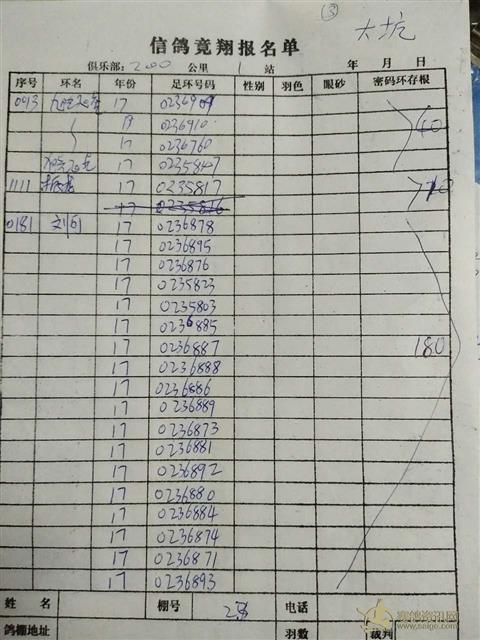 ③
大坑
信鸽竟翔报名单
俱乐部: 200 公里 1 站 年 月 日
序号 环名 年份 足环号码 性别 羽色 眼砂 密码环存根
0193 17 0236909
17 0236910
17 0236760 40
17 0235847
1111 17 0235817 10
17 0235816
0181 17 0236878
17 0236895
17 0236876
17 0235823
17 0235803
17 0236885
17 0236887 180
17 0236888
17 0236886
17 0236889
17 0236873
17 0236881
17 0236892
17 0236880
17 0236884
17 0236874
17 0236871
17 0236893
姓名 棚号 电话
鸽棚地址 羽数 裁判
赛鸽资讯网
www.saige.com